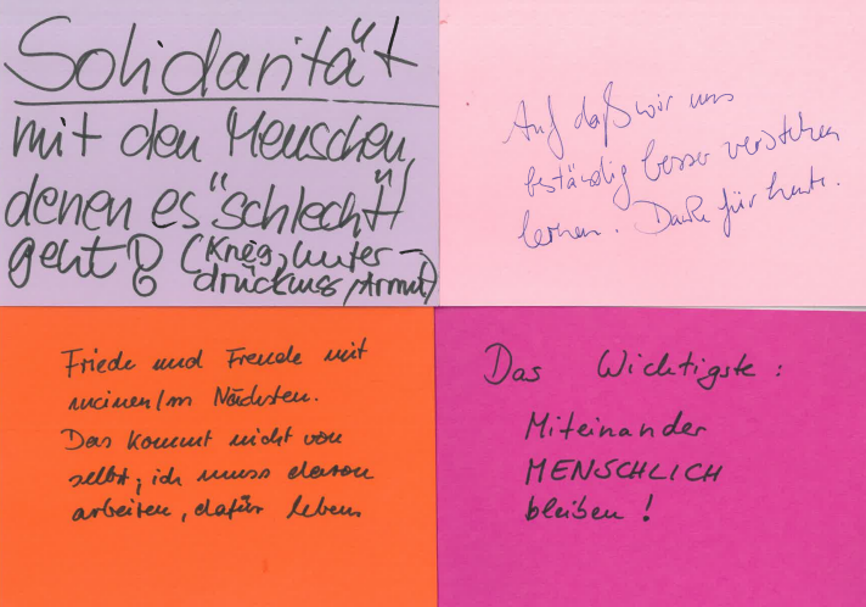 Solidarität
mit den Menschen,
denen es "schlecht"
geht! (Krieg, Unter-
drückung, Armut)
Auf daß wir uns
beständig besser verstehen
lernen. Danke für heute.
Friede und Freude mit
meinen/m Nächsten.
Das kommt nicht von
selbst, ich muss daran
arbeiten, dafür leben
Das Wichtigste:
Miteinander
MENSCHLICH
bleiben!